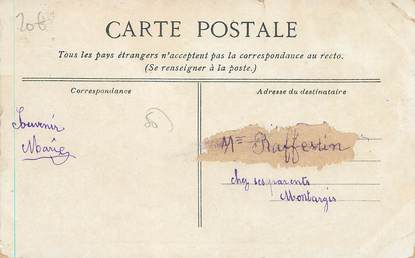 20€
CARTE POSTALE
Tous les pays étrangers n'acceptent pas la correspondance au recto.
(Se renseigner à la poste.)
Correspondance
Adresse du destinataire
Souvenir
Marie
Mlle Raffestin
chez ses parents
Montargis